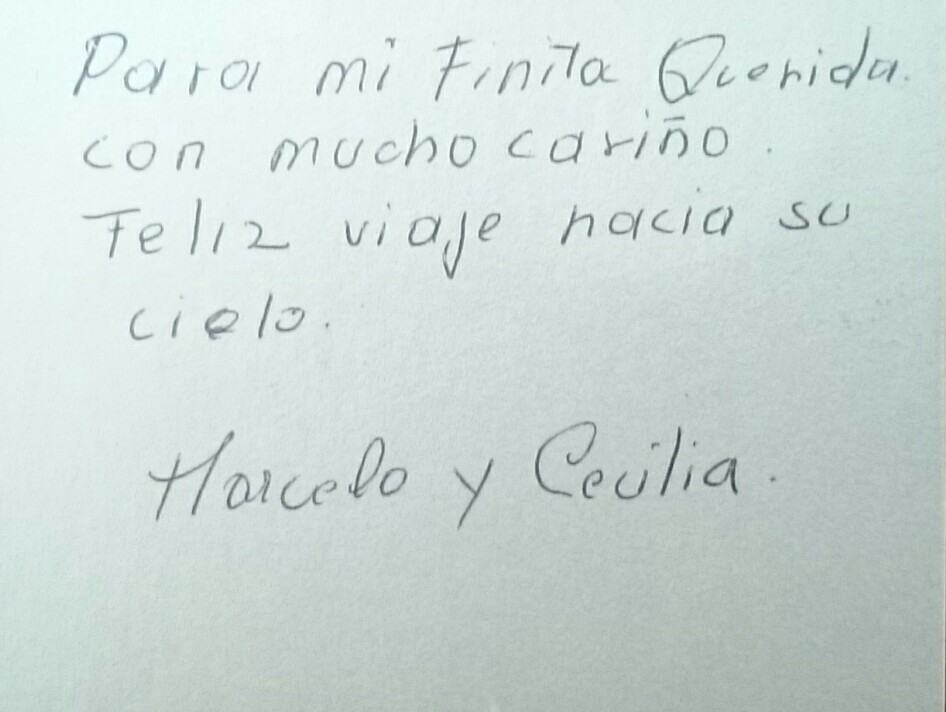 Para mi Finita Querida.
con mucho cariño.
Feliz viaje hacia su
cielo.
Marcelo y Cecilia.